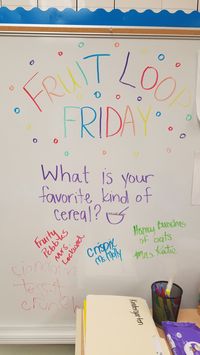 FRUIT LOOP
FRIDAY
What is your
favorite kind of
cereal?
Honey bunches
of oats
Mrs Katie
Fruity
Pebbles
Mrs.
Crispix
Cinnamon
toast
crunch
Kindergarten